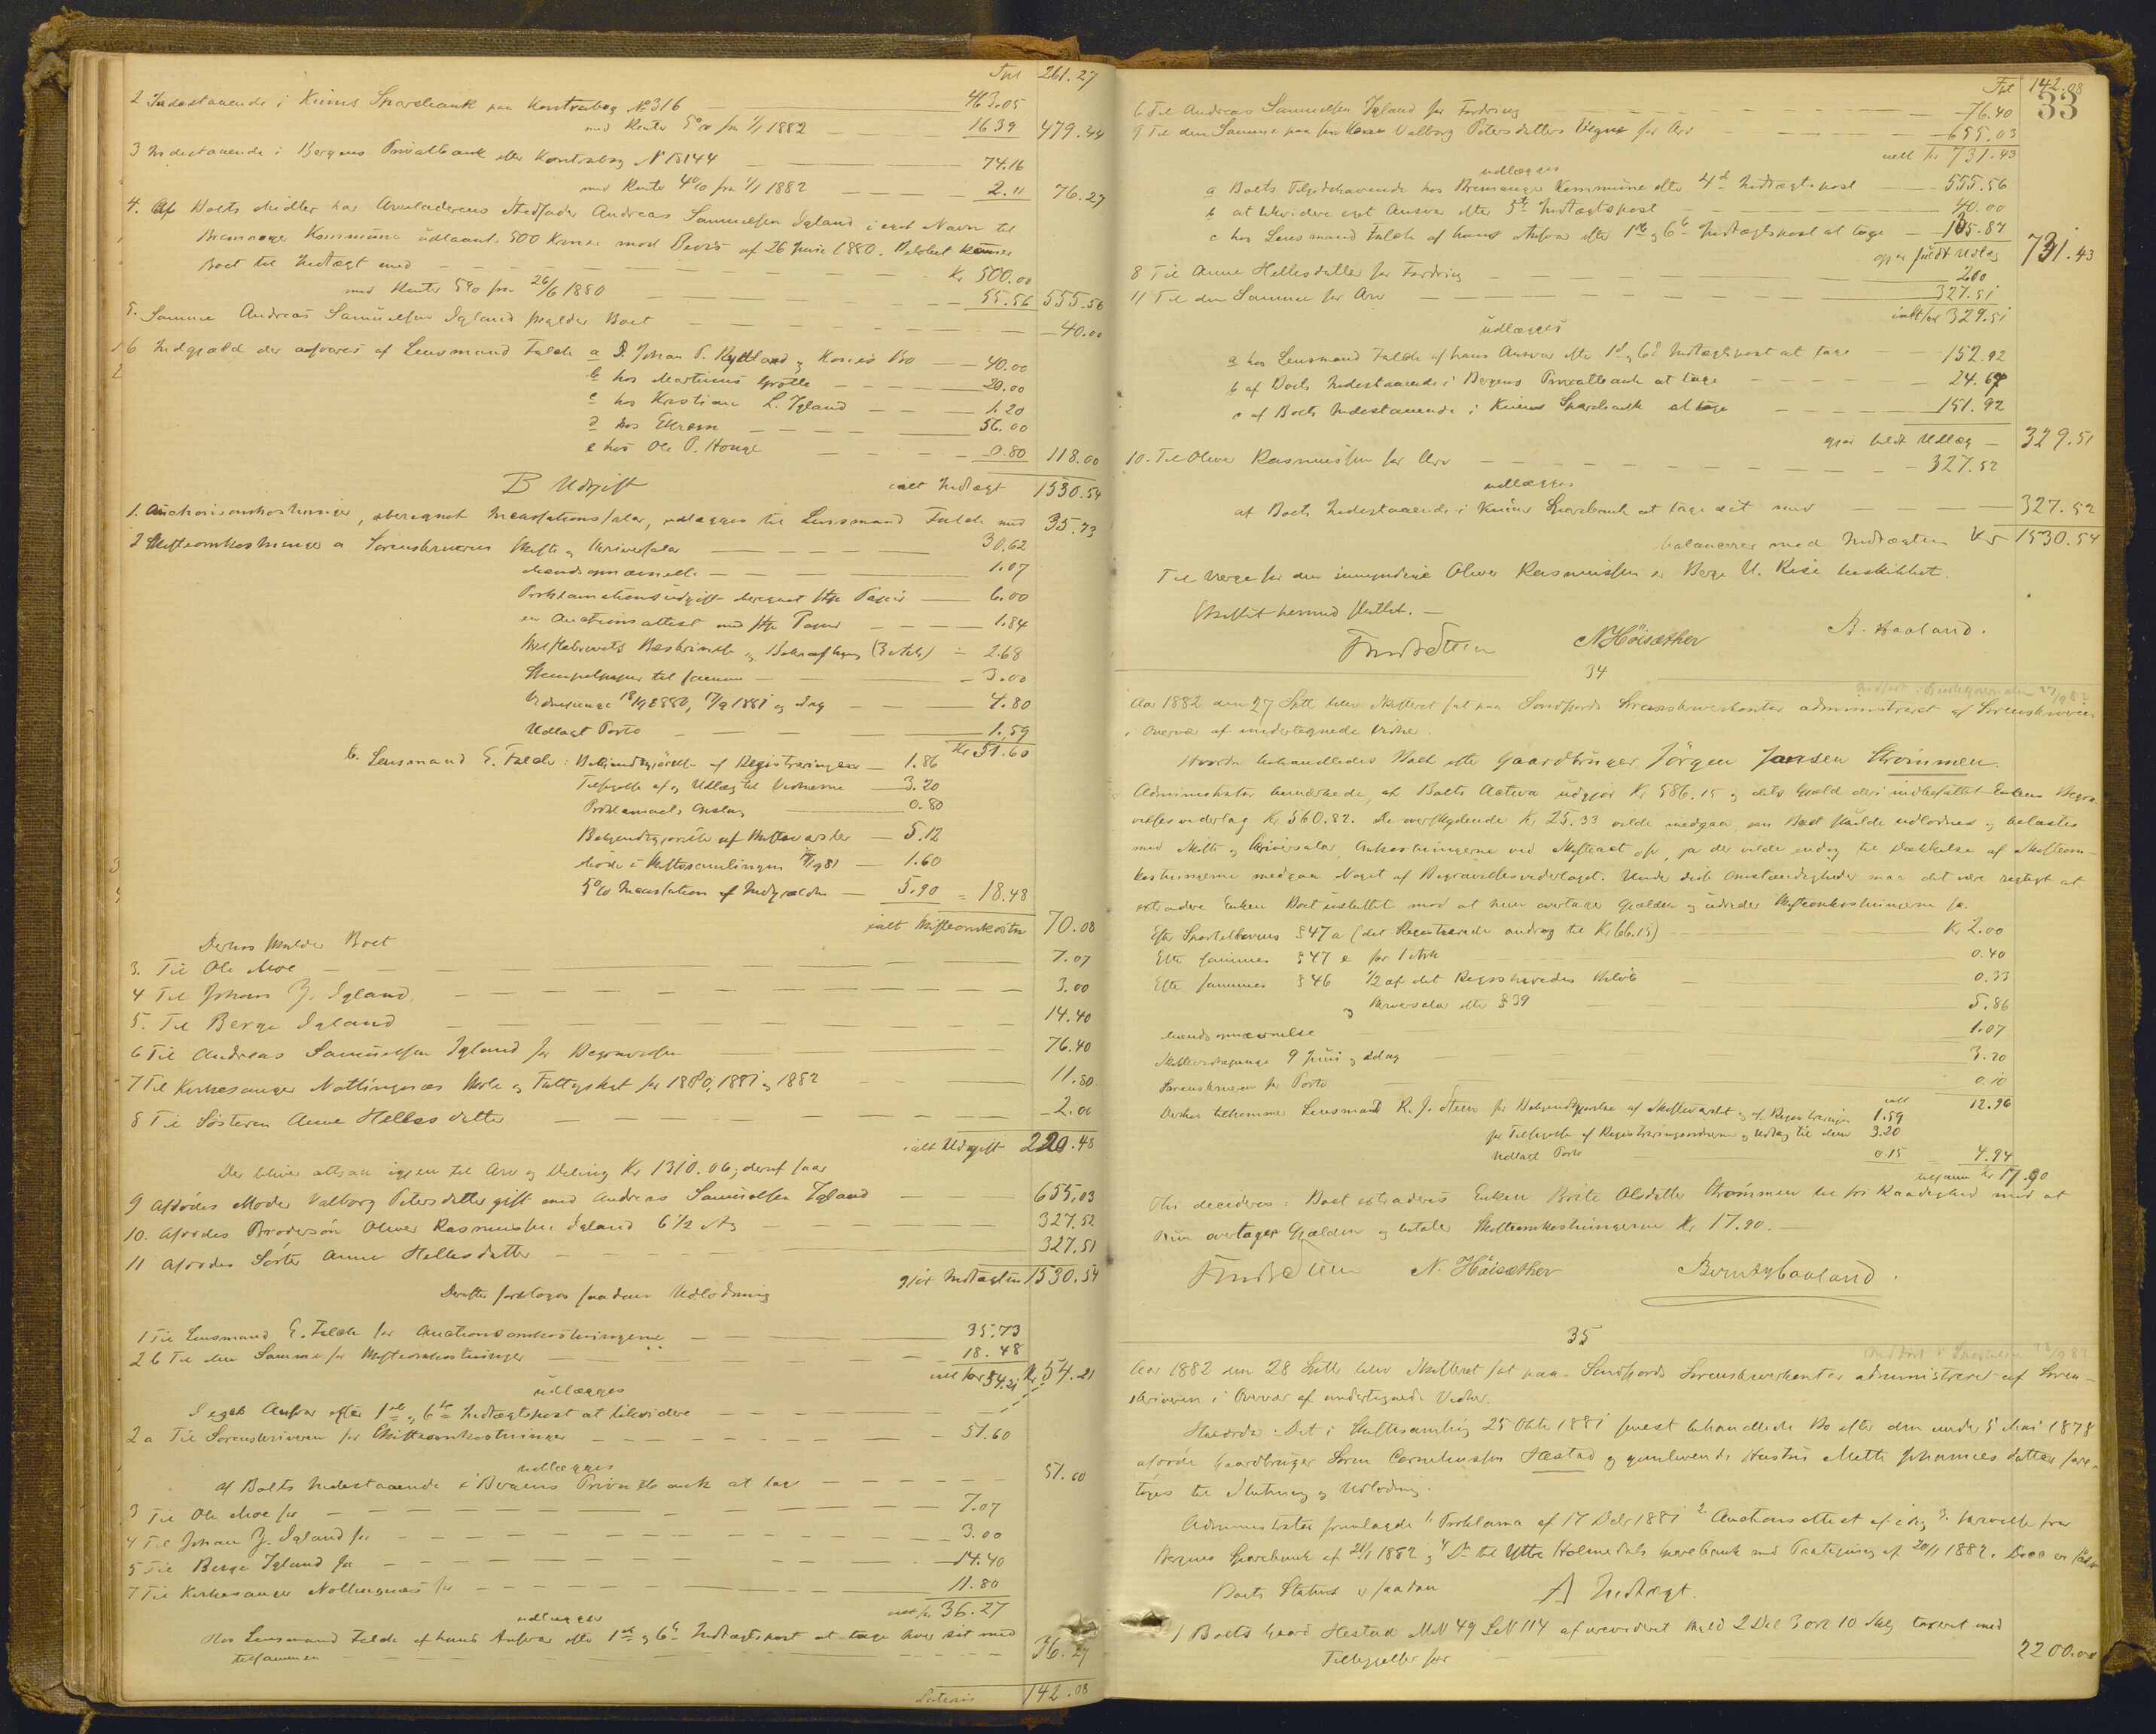 Tpt 261.27
2 Indestaaende i Kinns Sparebank paa Kontrabog No 316 — 463.05
med Renter 5% fra 1/1 1882 — 16.39 479.44
3 Indestaaende i Bergens Privatbank efter Kontrabog N 18144 — 74.16
med Renter 4% fra 1/1 1882 — 2.11 76.27
4. Af Boets Midler har Arveladerens Stedfader Andreas Samuelsen Igland i eget Navn til
Bremanger Kommune udlaant 500 Kroner mod Bevis af 26 Juni 1880. Beløbet kommer
Boet til Indtægt med — Kr 500.00
med Renter 5% fra 26/6 1880 — 55.56 555.56
5. Samme Andreas Samuelsen Igland skylder Boet — 40.00
6 Indgjæld der ansvares af Lensmand Falch a D. Johan P. Rydland og Kones Bo — 40.00
b hos Martinus Grotle — 20.00
c hos Kristian L. Igland — 1.20
d hos — 56.00
e hos Ole P. Houge — 0.80 118.00
B Udgift ialt Indtægt 1530.54
1. Auktionsomkostninger, iberegnet Incassationssalar, udlægges til Lensmand Falch med 35.73
2 Skifteomkostninger a Sorenskriveren Skifte og Skriversalar — 30.62
Mændsopnævnelse — 1.07
Proklamationsudgift iberegnet stp Papir — 6.00
en Auctionsattest med stp Papir — 1.84
Skiftebrevets Beskrivelse og Bekræftigen (3 Ark) — 2.68
Stempelpapir til samme — 3.00
Vidnepenge 18/9 1880, 17/9 1881 og idag — 4.80
Udlagt Porto — 1.59
Kr 51.60
b. Lensmand E. Falch: Bekjendtgjørelse af Registreringen — 1.86
Tilsigelse af og Udlæg til Vidnerne — 3.20
Proklamaets Anslag — 0.80
Bekjendtgjørelse af Skiftevarsler — 5.12
Møde i Skiftesamlingen 17/9 81 — 1.60
5% Incassation af Indgjælden — 5.90 = 18.48
ialt Skifteomkostn 70.08
Derhos skylder Boet
3. Til Ole Moe — 7.07
4 Til Johan J. Igland — 3.00
5. Til Berge Igland — 14.40
6 Til Andreas Samuelsen Igland for Begravelsen — 76.40
7 Til Kirkesanger Nøttingnæs Skole og Fattigskat for 1880, 1881 og 1882 — 11.80
8 Til Søsteren Anne Hellesdatter — 2.00
ialt Udgift 220.48
Der bliver altsaa igjen til Arv og Deling Kr 1310.06; deraf faar
9 Afdødes Moder Valborg Petersdatter gift med Andreas Samuelsen Igland — 655.03
10. Afdødes Brodersøn Oluer Rasmussen Igland 6 1/2 Aar — 327.52
11 Afdødes Søster Anne Hellesdatter — 327.51
gjør Indtægten 1530.54
Derefter foretoges saadan Udlodning
1 Til Lensmand E. Falch for Auctionsomkostningerne — 35.73
2 b Til den Samme for Skifteomkostninger — 18.48
ialt Kr 54.21 Kr 54.21
udlægges
I eget Ansvar efter 1ste og 6te Indtægtspost at likvidere —
2 a Til Sorenskriveren for Skifteomkostninger — 51.60
udlægges
af Boets Indestaaende i Bergens Privatbank at tage — 51.60
3 Til Ole Moe for — 7.07
4 Til Johan J. Igland for — 3.00
5 Til Berge Igland for — 14.40
7 Til Kirkesanger Nøttingnæs for — 11.80
ialt kr 36.27
udlægges
Hos Lensmand Falch af hans Ansvar efter 1ste og 6te Indtægtspost at tage hver sit med
tilsammen — 36.27
Lateris 142.08
Tpt 142.08
33
6 Til Andreas Samuelsen Igland for Fordring — 76.40
9 Til den Samme paa sin Kones Valborg Petersdatters Vegne for Arv — 655.03
ialt kr 731.43
udlægges
a Boets Tilgodehavende hos Bremanger Kommune efter 4de Indtægtspost — 555.56
b at likvidere eget Ansvar efter 5te Indtægtspost — 40.00
c hos Lensmand Falch af hans Ansvar efter 1ste og 6te Indtægtspost at tage — 135.87
gjør fuldt Udlæg 731.43
8 Til Anne Hellesdatter for Fordring — 2.00
11 Til den Samme for Arv — 327.51
ialt kr 329.51
udlægges
a hos Lensmand Falch af hans Ansvar efter 1ste og 6te Indtægtspost at tage — 152.92
b af Boets Indestaaende i Bergens Privatbank at tage — 24.67
c af Boets Indestaaende i Kinns Sparebank at tage — 151.92
gjør fuldt Udlæg — 329.51
10. Til Oluer Rasmussen for Arv — 327.52
udlægges
af Boets Indestaaende i Kinns Sparebank at tage sit med — 327.52
balancerer med Indtægten Kr 1530.54
Til Værge for den umyndige Oluer Rasmussen er Berge U. Rise beskikket.
Skiftet hermed sluttet. —
N Höisæther B. Haaland.
34
Aar 1882 den 27 Sept blev Skifteret sat paa Søndfjords Sorenskriverkontor administreret af Sorenskriveren
i Overvær af undertegnede Vidner.
Hvorda behandledes Boet efter Gaardbruger Jørgen Jansen Strømmen.
Administrator bemærkede, at Boets Activa udgjør Kr 586.15 og dets Gjæld deri indbefattet Enkens Begra-
velsesvederlag Kr 560.82. De overskydende Kr 25.33 vilde medgaa, om Boet skulde udloddes og belastes
med Skifte og Skriversalar, Omkostningerne ved Skifteact osv, ja der vilde endog til Dækkelse af Skifteom-
kostningerne medgaa Noget af Begravelsesvederlaget. Under disse Omstændigheder maa det være rigtigt at
extradere Enken Boet usluttet mod at hun overtager Gjælden og udreder Skifteomkostningerne sa.
Efter Sportellovens § 47 a (det Registrerede androg til Kr 66.15) — Kr 2.00
Efter sammes § 47 e for 1 Ark — 0.40
Efter sammes § 46 1/2 af det Registreredes Beløb — 0.33
og Skriversalar efter § 39 — 5.86
Mændsopnævnelse — 1.07
Skiftevidnepenge 9 Juni og idag — 3.20
Sorenskriveren for Porto — 0.10
ialt 12.96
Derhos tilkommer Lensmand R. J. Steen for Bekjendtgjørelse af Skiftevarsel og af Registreringen 1.59
for Tilsigelse af Registreringsvidnerne og Udlæg til dem 3.20
Udlagt Porto 0.15 4.94
tilsammen Kr 17.90
Thi decideres: Boet extraderes Enken Brite Olsdatter Strømmen til fri Raadighed mod at
hun overtager Gjælden og betaler Skifteomkostningerne Kr 17.90. —
N. Höisæther Berntz Haaland.
35
Aar 1882 den 28 Septbr blev Skifteret sat paa Søndfjords Sorenskriverkontor administreret af Soren-
skriveren i Overvær af undertegnede Vidner.
Hvorda: Det i Skiftesamling 25 Oktbr 1881 senest behandlede Bo efter den under 5 Mai 1878
afdøde Gaardbruger Søren Corneliussen Hestad og gjenlevende Hustru Mette Johannesdatter fore-
toges til Slutning og Udlodning.
Administrator fremlagde 1. Proklama af 17 Debr 1881 2. Auctionsattest af idag 3. Skrivelse fra
Bergens Sparebank af 21/1 1882 og 4 Do til Ytre Holmedals Sparebank med Paategning af 20/1 1882.
Boets Status er saadan A Indtægt.
1 Boets Gaard Hestad MN 49 LN 114 af urevideret Skyld 2 Dal 3 ort 10 Skill taxeret med
Tilliggelser for — 2200.00